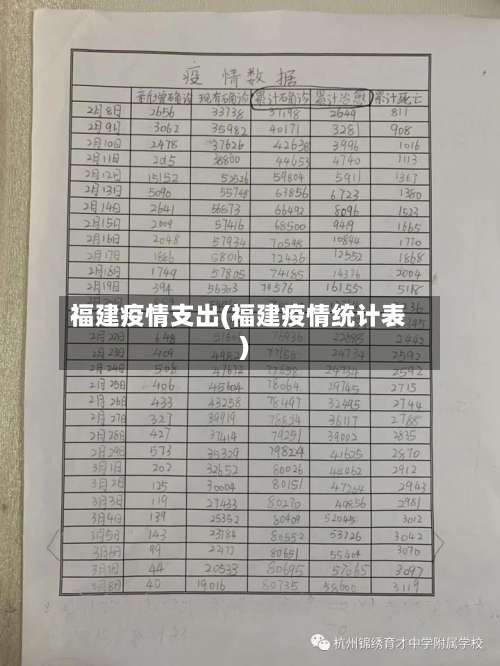 疫 情 数 据
新增确诊 现有确诊 累计确诊 累计治愈 累计死亡
2月8日 2656 33738 37198 2649 811
2月9日 3062 35982 40171 3281 908
2月10日 2478 37626 42638 3996 1016
2月11日 2015 38800 44653 4740 1113
2月12日 15152 52526 59804 5911 1367
2月13日 5090 55748 63856 6723 1380
2月14日 2641 56873 66492 8096 1523
2月15日 2009 57416 68500 9419 1665
2月16日 2048 57934 70548 10844 1770
2月17日 1886 58016 72436 12552 1868
2月18日 1749 57805 74185 14376 2004
394 16155
福建疫情支出(福建疫情统计表
)
2月23日 409 24734 2592
2月24日 508 2592
2月25日 406 45604 78064 29745 2715
2月26日 433 43258 78497 32495 2744
2月27日 327 39919 78824 36117 2788
2月28日 427 37414 79251 39002 2835
2月29日 573 35329 79824 41625 2870
3月1日 202 32652 80026 2912
3月2日 125 30004 80151 47204 2943
3月3日 119 27433 80270 2981
3月4日 139 25352 80409 52045 3012
3月5日 143 23784 80552 53726 3042
3月6日 99 80651 55404 3070
3月7日 44 20533 80695 3097
3月8日 40 19016 80735 58600 3119
杭州锦绣育才中学附属学校